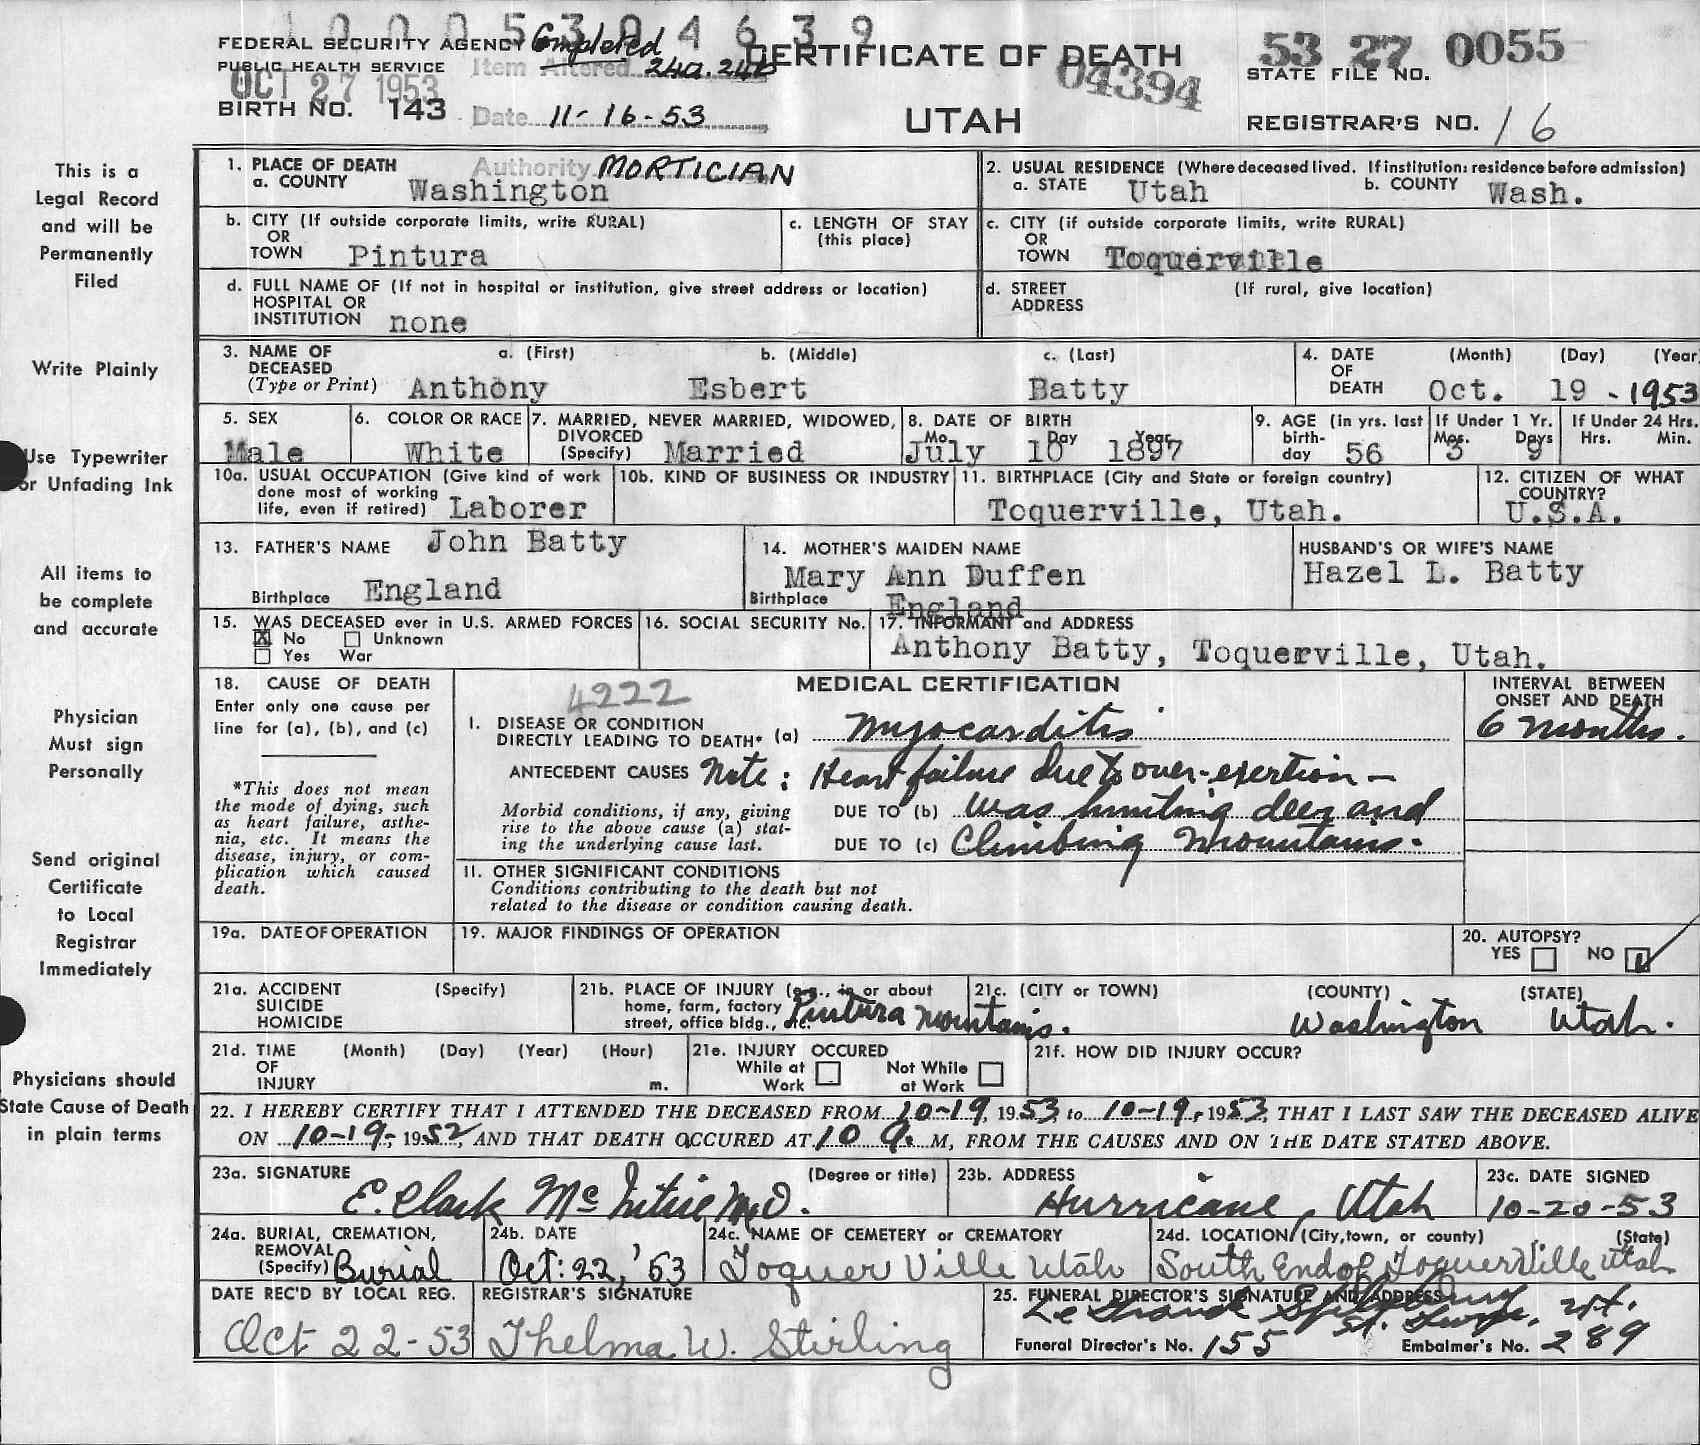 1000530 4639
FEDERAL SECURITY AGENCY Completed CERTIFICATE OF DEATH 53 27 0055
PUBLIC HEALTH SERVICE Item Altered 24a. 24b 04394 STATE FILE NO.
OCT 27 1953
BIRTH NO. 143 Date 11-16-53 UTAH REGISTRAR'S NO. 16
This is a
Legal Record
and will be
Permanently
Filed
Write Plainly
Use Typewriter
or Unfading Ink
All items to
be complete
and accurate
Physician
Must sign
Personally
Send original
Certificate
to Local
Registrar
Immediately
Physicians should
State Cause of Death
in plain terms
1. PLACE OF DEATH Authority MORTICIAN
a. COUNTY Washington
2. USUAL RESIDENCE (Where deceased lived. If institution: residence before admission)
a. STATE Utah b. COUNTY Wash.
b. CITY (If outside corporate limits, write RURAL)
OR
TOWN Pintura
c. LENGTH OF STAY
(this place)
c. CITY (if outside corporate limits, write RURAL)
OR
TOWN Toquerville
d. FULL NAME OF (If not in hospital or institution, give street address or location)
HOSPITAL OR
INSTITUTION none
d. STREET (If rural, give location)
ADDRESS
3. NAME OF a. (First) b. (Middle) c. (Last)
DECEASED
(Type or Print) Anthony Esbert Batty
4. DATE (Month) (Day) (Year)
OF
DEATH Oct. 19 - 1953
5. SEX
Male
6. COLOR OR RACE
White
7. MARRIED, NEVER MARRIED, WIDOWED,
DIVORCED
(Specify) Married
8. DATE OF BIRTH
Mo. Day Year
July 10 1897
9. AGE (in yrs. last
birth-
day 56
If Under 1 Yr.
Mos. Days
3 9
If Under 24 Hrs.
Hrs. Min.
10a. USUAL OCCUPATION (Give kind of work
done most of working
life, even if retired) Laborer
10b. KIND OF BUSINESS OR INDUSTRY
11. BIRTHPLACE (City and State or foreign country)
Toquerville, Utah.
12. CITIZEN OF WHAT
COUNTRY?
U.S.A.
13. FATHER'S NAME John Batty
Birthplace England
14. MOTHER'S MAIDEN NAME
Mary Ann Duffen
Birthplace England
HUSBAND'S OR WIFE'S NAME
Hazel L. Batty
15. WAS DECEASED ever in U.S. ARMED FORCES
X No Unknown
Yes War
16. SOCIAL SECURITY No.
17. INFORMANT and ADDRESS
Anthony Batty, Toquerville, Utah.
18. CAUSE OF DEATH
Enter only one cause per
line for (a), (b), and (c)
*This does not mean
the mode of dying, such
as heart failure, asthe-
nia, etc. It means the
disease, injury, or com-
plication which caused
death.
4222 MEDICAL CERTIFICATION
I. DISEASE OR CONDITION
DIRECTLY LEADING TO DEATH* (a) Myocarditis
ANTECEDENT CAUSES Note: Heart failure due to over-exertion -
Morbid conditions, if any, giving
rise to the above cause (a) stat-
ing the underlying cause last.
DUE TO (b) was hunting deer and
DUE TO (c) Climbing Mountains.
INTERVAL BETWEEN
ONSET AND DEATH
6 months.
II. OTHER SIGNIFICANT CONDITIONS
Conditions contributing to the death but not
related to the disease or condition causing death.
19a. DATE OF OPERATION
19. MAJOR FINDINGS OF OPERATION
20. AUTOPSY?
YES NO
21a. ACCIDENT (Specify)
SUICIDE
HOMICIDE
21b. PLACE OF INJURY (e.g., in or about
home, farm, factory
street, office bldg., etc. Pintura Mountains.
21c. (CITY or TOWN) (COUNTY) (STATE)
Washington Utah.
21d. TIME (Month) (Day) (Year) (Hour)
OF
INJURY m.
21e. INJURY OCCURED
While at Not While
Work at Work
21f. HOW DID INJURY OCCUR?
22. I HEREBY CERTIFY THAT I ATTENDED THE DECEASED FROM 10-19, 1953, to 10-19, 1953, THAT I LAST SAW THE DECEASED ALIVE
ON 10-19, 1952, AND THAT DEATH OCCURED AT 10 a. M, FROM THE CAUSES AND ON THE DATE STATED ABOVE.
23a. SIGNATURE (Degree or title)
E. Clark McIntire M.D.
23b. ADDRESS
Hurricane, Utah
23c. DATE SIGNED
10-20-53
24a. BURIAL, CREMATION,
REMOVAL
(Specify) Burial
24b. DATE
Oct: 22, '53
24c. NAME OF CEMETERY or CREMATORY
Toquer Ville Utah
24d. LOCATION (City, town, or county) (State)
South End of Toquerville Utah
DATE REC'D BY LOCAL REG.
Oct 22-53
REGISTRAR'S SIGNATURE
Thelma W. Stirling
25. FUNERAL DIRECTOR'S SIGNATURE AND ADDRESS
St. George, Ut.
Funeral Director's No. 155 Embalmer's No. 289